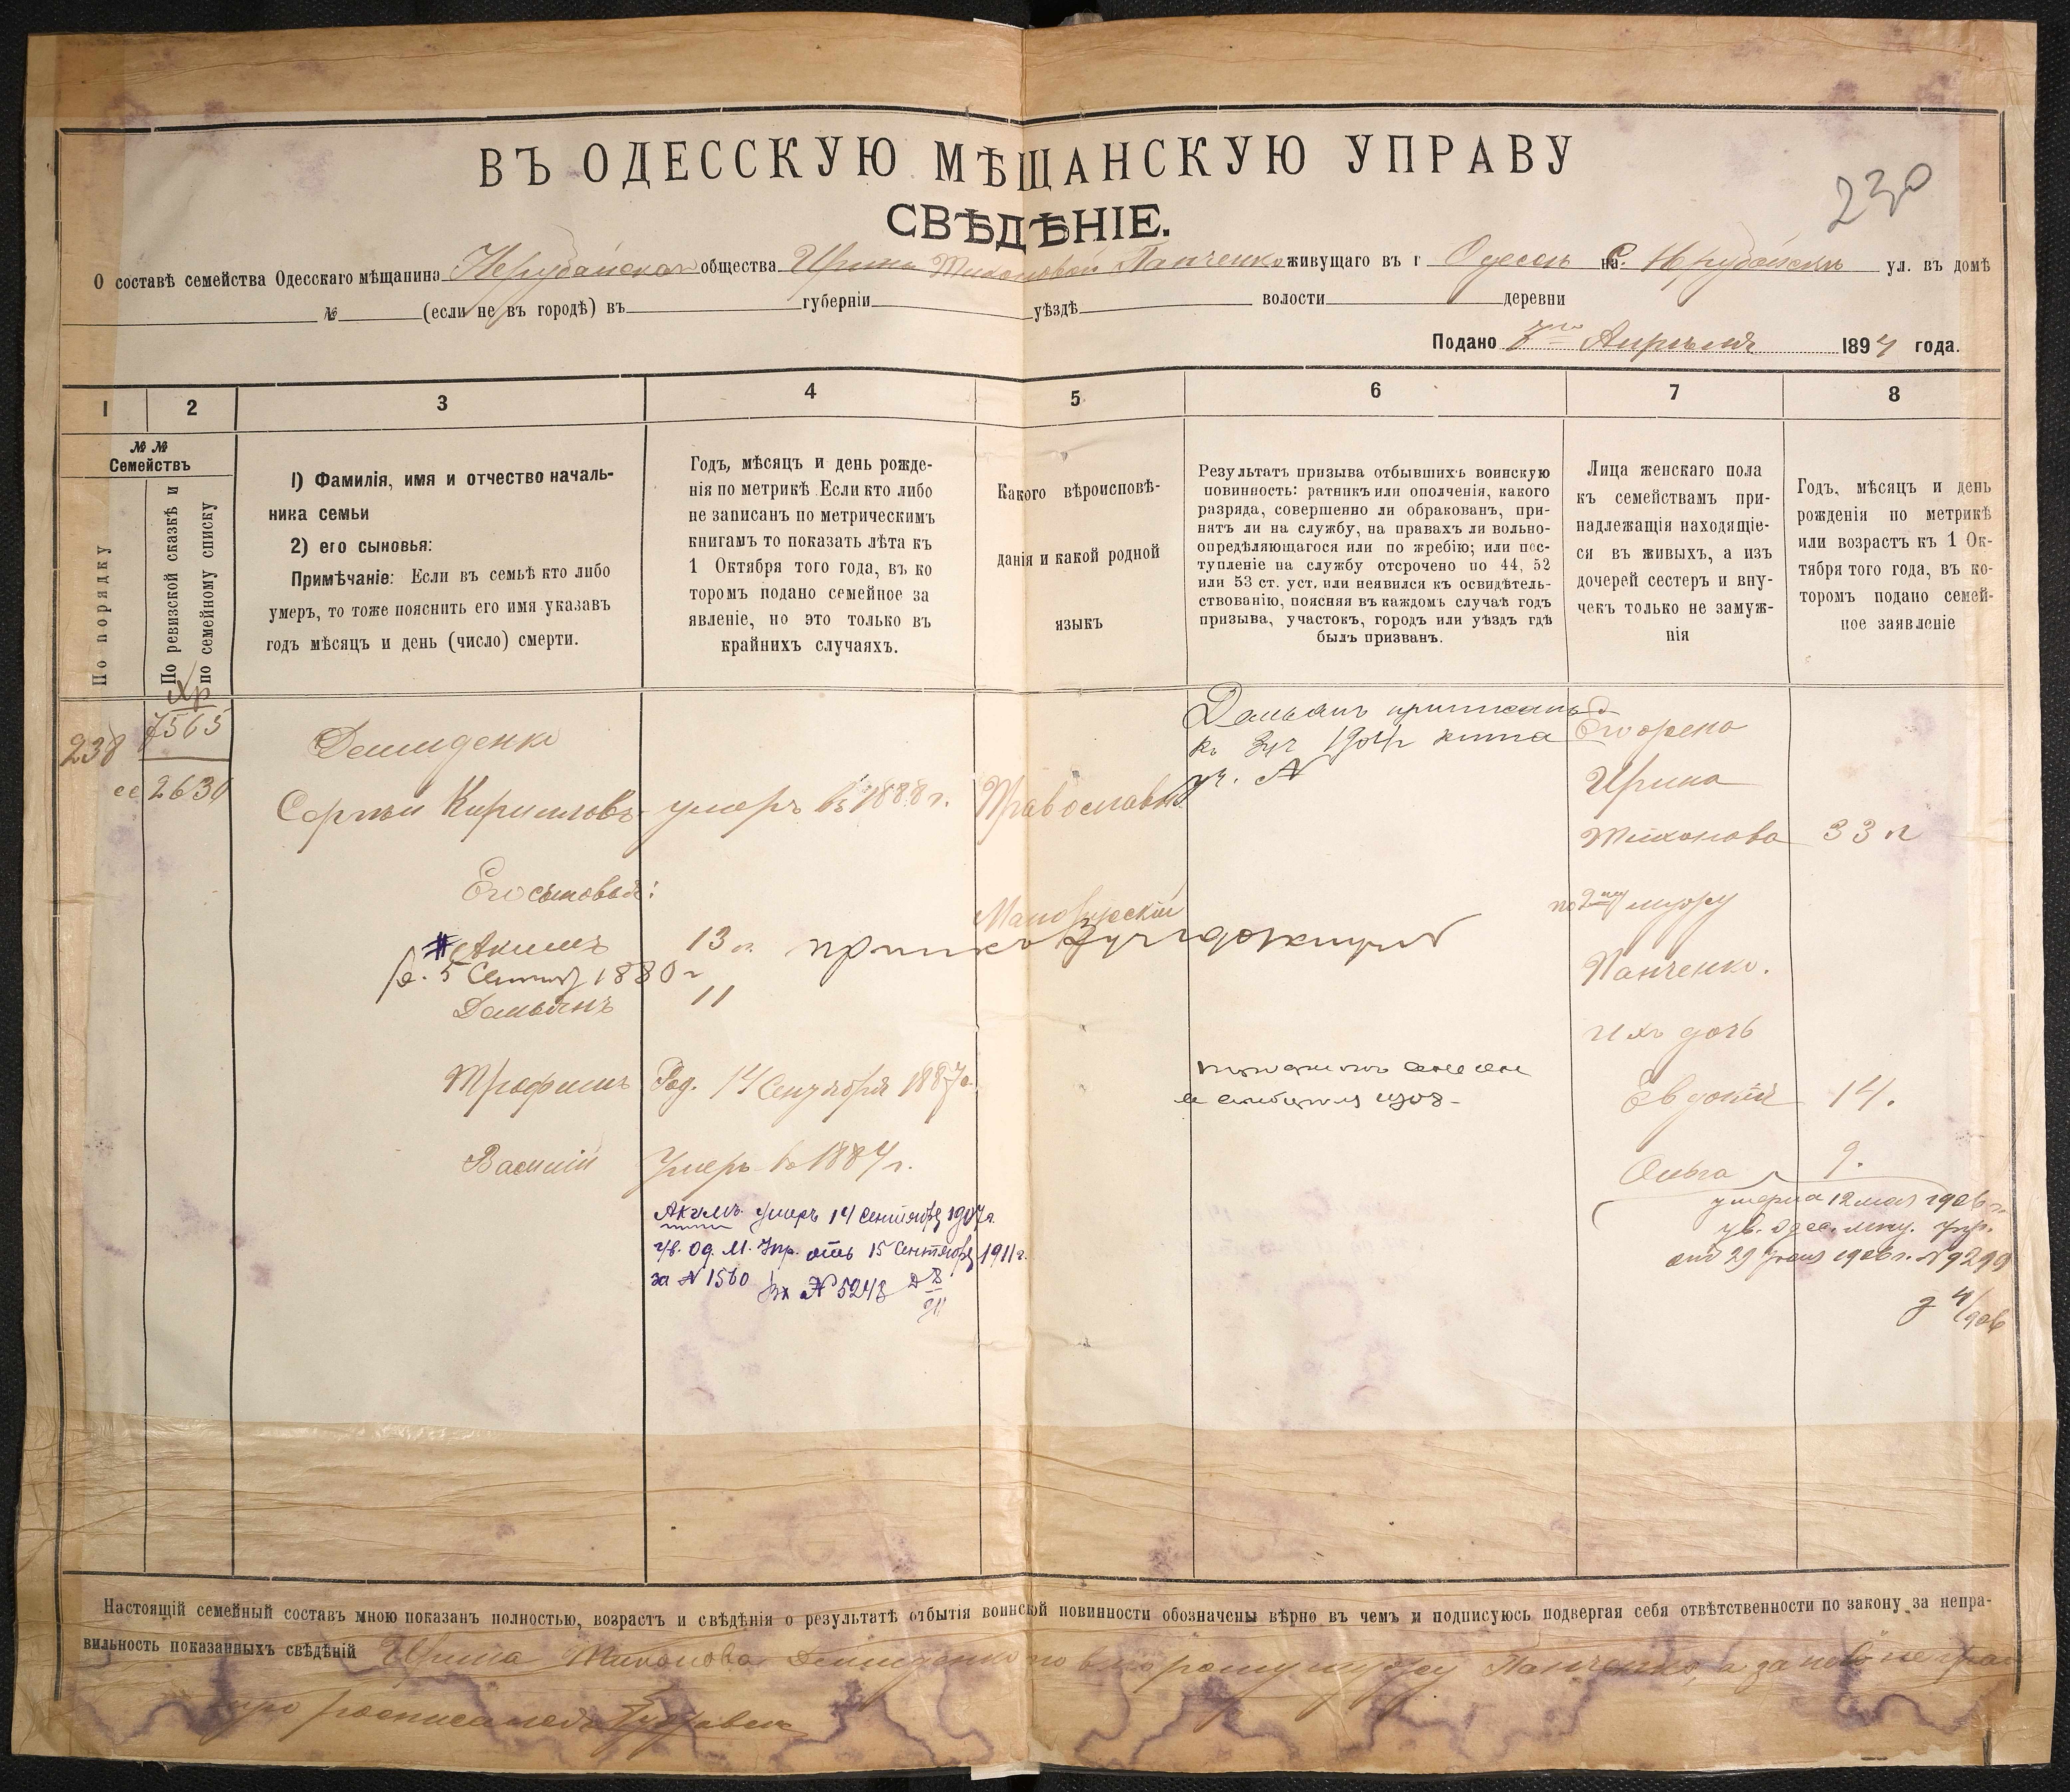 ВЪ ОДЕССКУЮ МѢЩАНСКУЮ УПРАВУ
230
СВѢДѢНІЕ.
О составѣ семейства Одесскаго мѣщанина Нерубайскаго общества Ирины Тихоновой Панченко живущаго въ г Одессѣ на С. Нерубайскѣ ул. въ домѣ
№ (если не въ городѣ) въ губерніи уѣздѣ волости деревни
Подано 7го Апрѣля 1894 года.
1 2 3 4 5 6 7 8
№ №
Семействъ
По порядку
По ревизской сказкѣ и
по семейному списку
1) Фамилія, имя и отчество началь-
ника семьи
2) его сыновья:
Примѣчаніе: Если въ семьѣ кто либо
умеръ, то тоже пояснить его имя указавъ
годъ мѣсяцъ и день (число) смерти.
Годъ, мѣсяцъ и день рожде-
нія по метрикѣ Если кто либо
не записанъ по метрическимъ
книгамъ то показать лѣта къ
1 Октября того года, въ ко
торомъ подано семейное за
явленіе, но это только въ
крайнихъ случаяхъ.
Какого вѣроисповѣ-
данія и какой родной
языкъ
Результатъ призыва отбывшихъ воинскую
повинность: ратникъ или ополченія, какого
разряда, совершенно ли обракованъ, при-
нятъ ли на службу, на правахъ ли вольно-
опредѣляющагося или по жребію; или пос-
тупленіе на службу отсрочено по 44, 52
или 53 ст. уст. или неявился къ освидѣтель-
ствованію, поясняя въ каждомъ случаѣ годъ
призыва, участокъ, городъ или уѣздъ гдѣ
былъ призванъ.
Лица женскаго пола
къ семействамъ при-
надлежащія находящіе-
ся въ живыхъ, а изъ
дочерей сестеръ и вну-
чекъ только не замуж-
нія
Годъ, мѣсяцъ и день
рожденія по метрикѣ
или возрастъ къ 1 Ок-
тября того года, въ ко-
торомъ подано семей-
ное заявленіе
Хр
7565
238
2630
Демиденко
Сергѣй Кириловъ умеръ въ 1888 г. Православн.
Демьянъ приписанъ
къ 3уч 1904г
Его жена
Ирина
Тихонова 33 л
по 2му мужу
Панченко.
Его сыновья:
Малорусскій
# Акимъ 13 л.
р. 5 Сентяб 1880 г
Демьянъ 11
ихъ дочь
Трофимъ Род. 14 Сентября 1887г.
Евдокія 14.
Василій Умеръ въ 1884 г.
Ольга 9.
умерла 12 мая 1906 г.
ув. Одес. мѣщ. Упр.
1906 г. № 9299
Акимъ умеръ 14 Сентября 1907г.
Ув. Од. М. Упр. отъ 15 Сентября 1911 г.
за № 1560 Вх № 5248
Настоящій семейный составъ мною показанъ полностью, возрастъ и свѣдѣнія о результатѣ отбытія воинской повинности обозначены вѣрно въ чемъ и подписуюсь подвергая себя отвѣтственности по закону за непра-
вильность показанныхъ свѣдѣній Ирина Тихонова Демиденко по второму мужу Панченко, а за
росписался